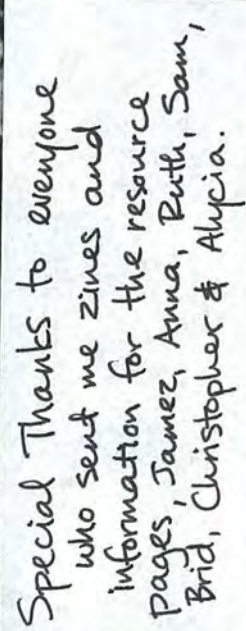 Special Thanks to everyone
who sent me zines and
information for the resource
pages, Jamez, Anna, Ruth, Sam,
Brid, Christopher & Alycia.